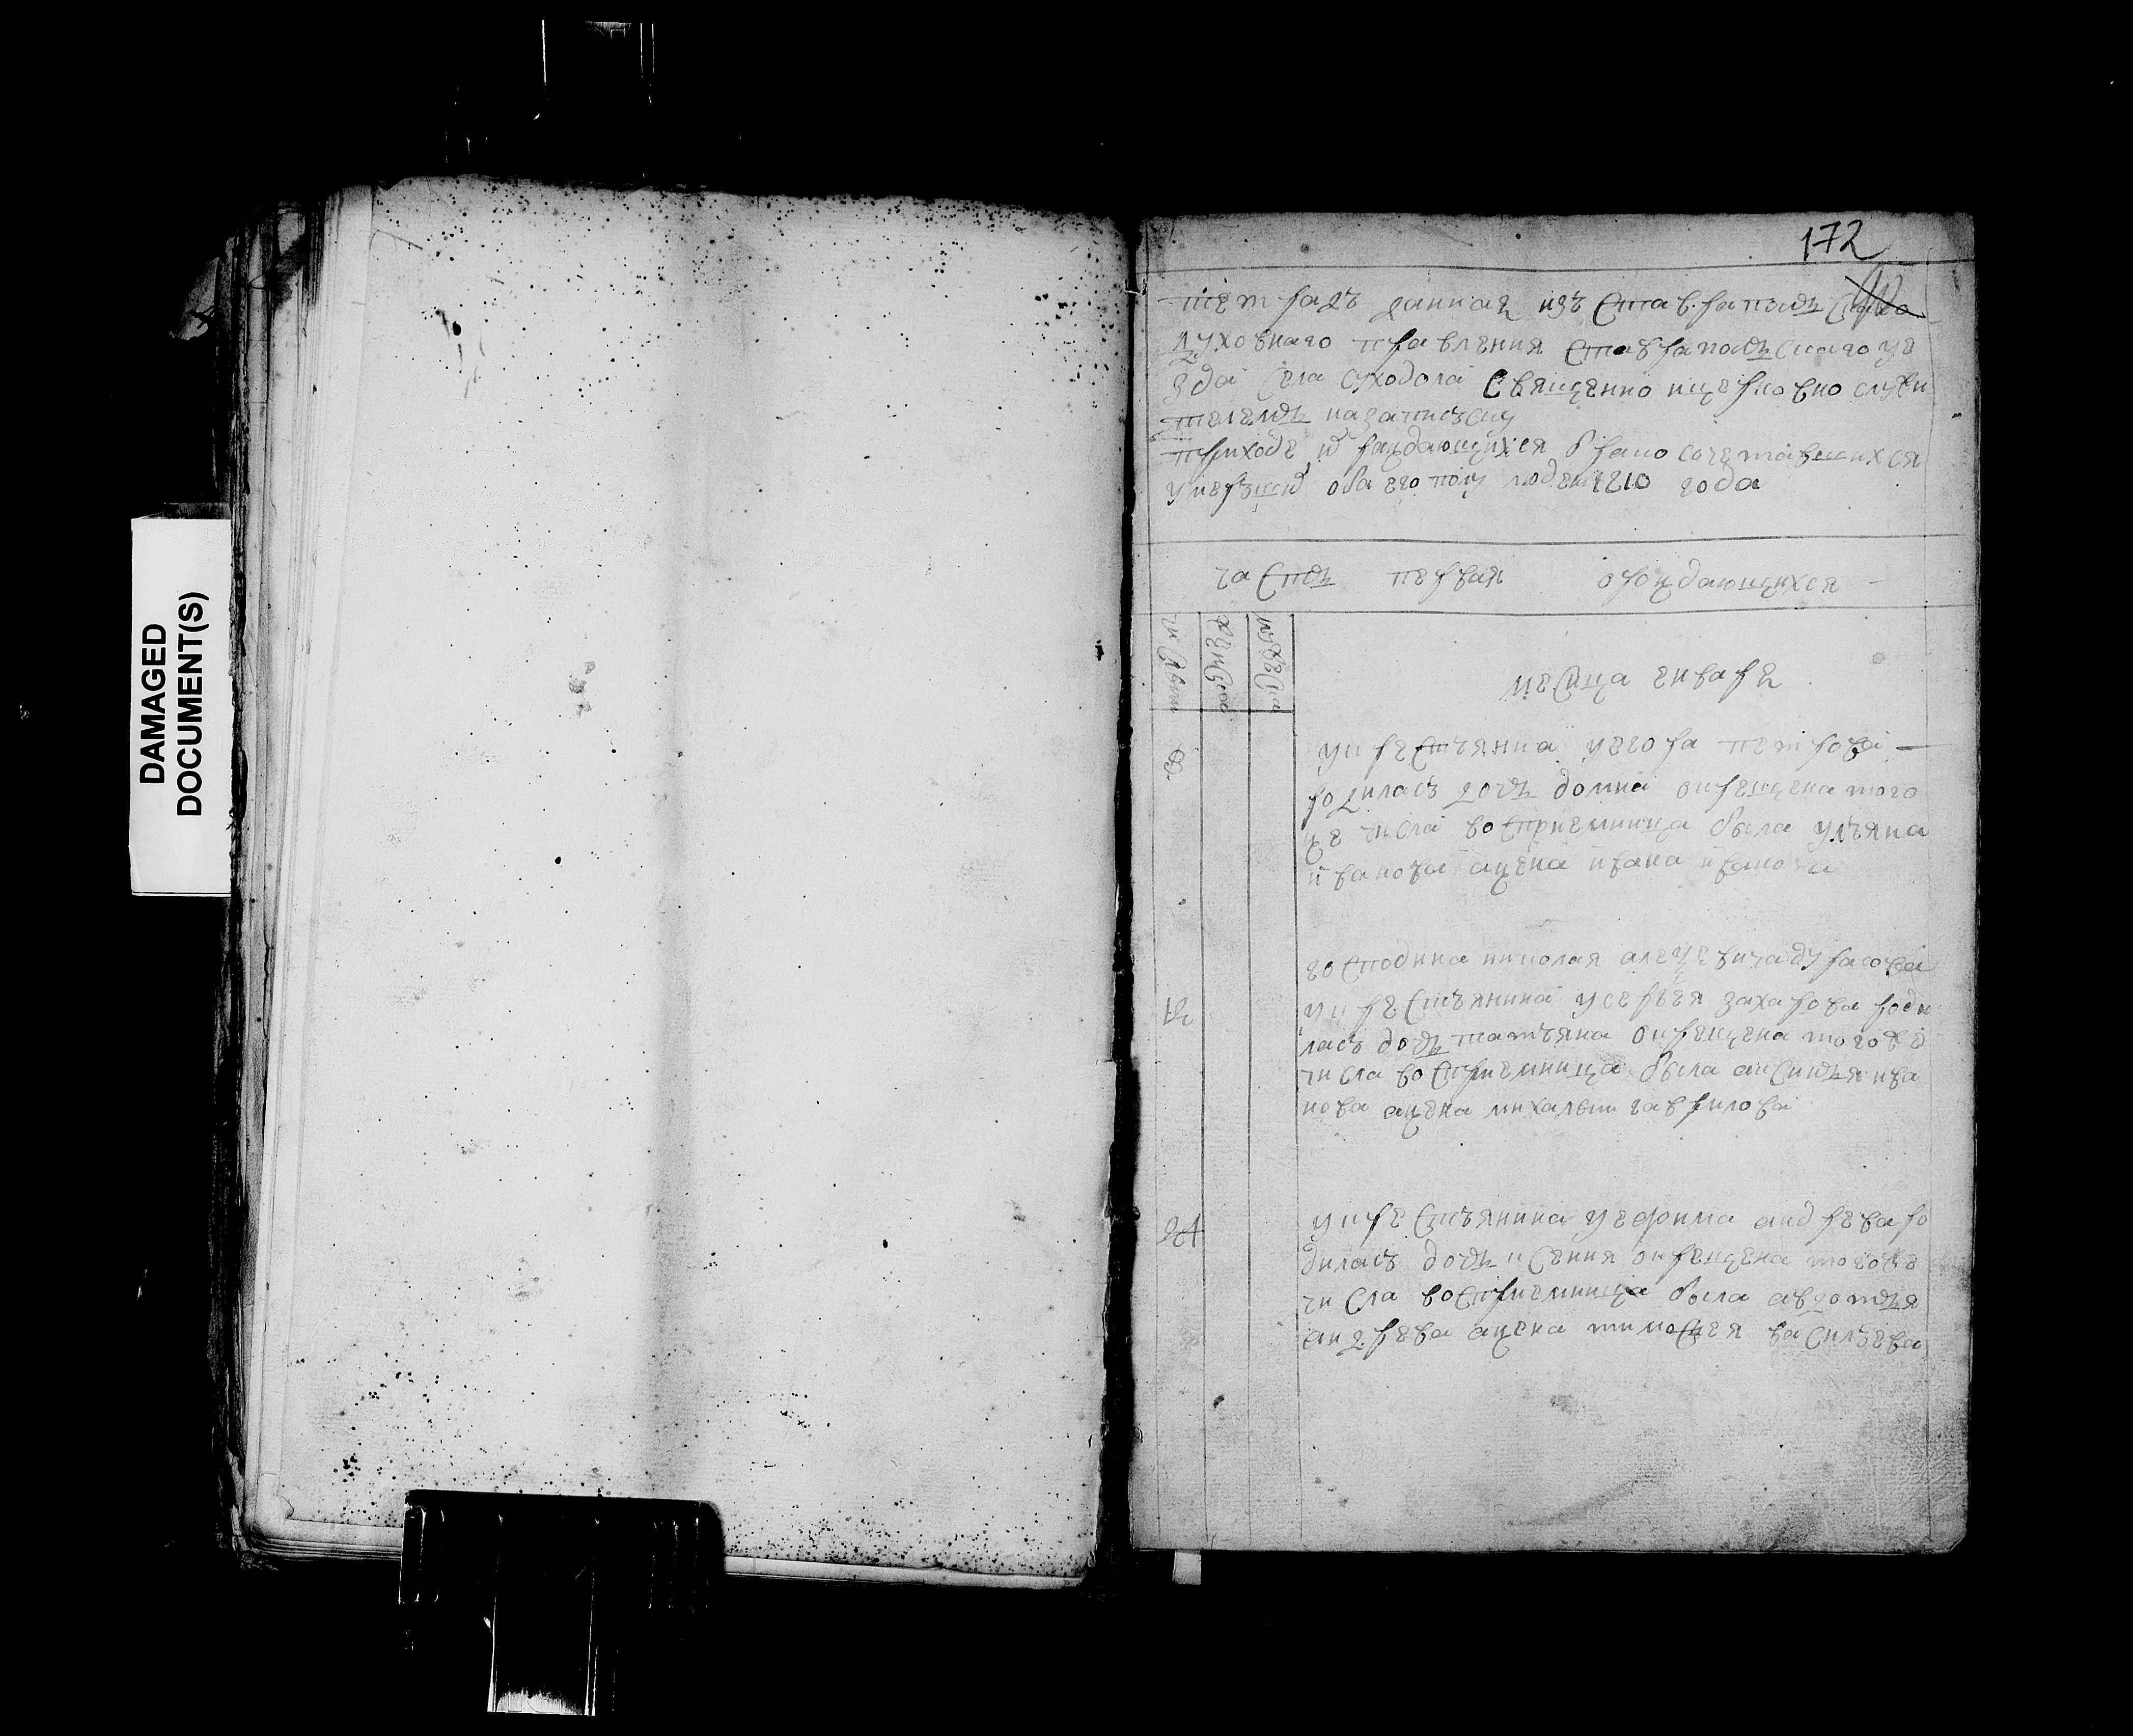 DAMAGED
DOCUMENT(S)
172
тетрадь данная изъ Ставрапольска
духовнаго правления Ставрапольскаго уе
зда села суходола Священно ицерковно служи
телемъ назаписъку
приходе ѡ раждающихся брако сочетавшихся
умерьшиѡ обаего полу людеи 1810 года
частъ первая орождающихся
месица енваре
укрестьянина уегора петрова
родиласъ дочь домна окрещена того
же числа восприемница была ульяна
иванова ажена ивана иванова
господина николая дурасова
укрестьянина усергея захарова роди
ласъ дочь татьяна окрещена тогоже
числа воспрiемница была аксинья ива
нова ажена михаилы гаврилова
24
укрестьянина уефима андрева ро
диласъ дочь ксения окрещена тогоже
числа воспрiемница была авдотья
андрева ажена тимофея васильева